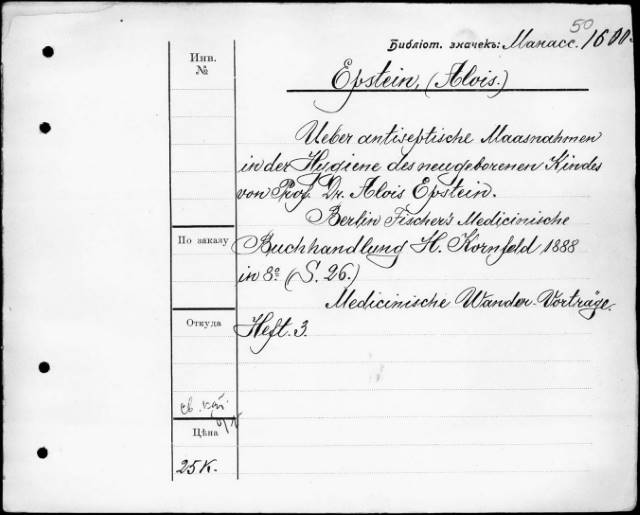 50
Библіот. значекъ: Манасс. 1600.
Инв.
№
Epstein, (Alois.)
Ueber antiseptische Maasnahmen
in der Hygiene des neugeborenen Kindes
von Prof. Dr. Alois Epstein.
Berlin Fischer's Medicinische
По заказу
Buchhandlung H. Kornfeld 1888
in 8º (S. 26.)
Medicinische Wander-Vorträge.
Откуда
Heft. 3.
Цѣна
25 к.